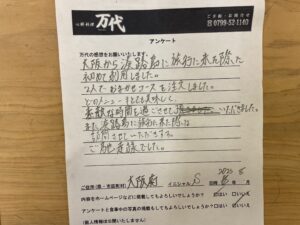 心鮮料理 万代
ご予約・お問合せ
☎0799-52-1103
アンケート
万代の感想をお願いいたします。
大阪から淡路島に旅行に来た際に
初めて利用しました。
2人でおまかせコースを注文しました。
どのメニューもとても美味しく、
素敵な時間を過ごさせていただきました。
また淡路島に訪れた際は
訪問させていただきます。
ご馳走様でした。
ご住所(県・市区町村) 大阪府 イニシャル S
内容をホームページなどに掲載してもよろしいでしょうか? はい いいえ
アンケートと食事中の写真の掲載もしてもよろしいでしょうか? はい いいえ
(個人情報は公開いたしません)